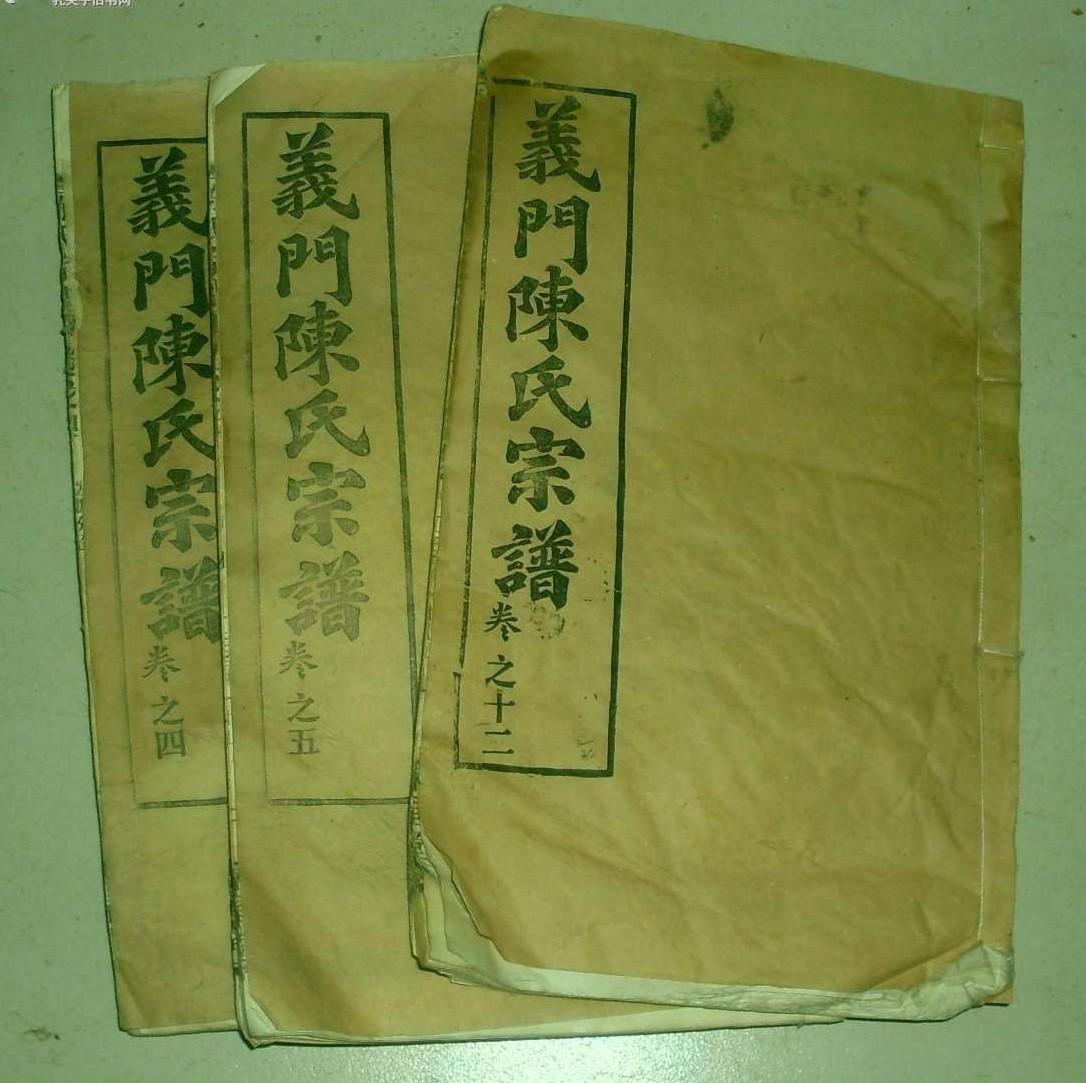 義門陳氏宗譜卷之十二
義門陳氏宗譜卷之五
義門陳氏宗譜卷之四